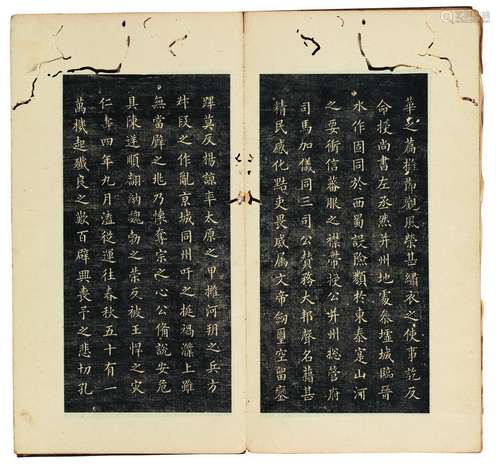 華之舊擁節觀風榮甚繡衣之使事訖反
命授尚書左丞然并州地處參墟城臨晉
水作固同於西蜀設險類於東秦寔山河
之要衝信蕃服之襟帶授公并州摠管府
司馬加儀同三司公贊務大邦聲名藉甚
精民感化黠吏畏威属文帝劒璽空留鑾
蹕莫反楊諒率太原之甲擁河朔之兵方
叔段之作亂京城同州吁之挺禍濮上雖
無當璧之兆乃懷奪宗之心公備說安危
具陳逆順翻納魏勃之榮反被王悍之灾
仁壽四年九月溘從運往春秋五十有一
萬機起殲良之歎百辟興喪予之悲切孔